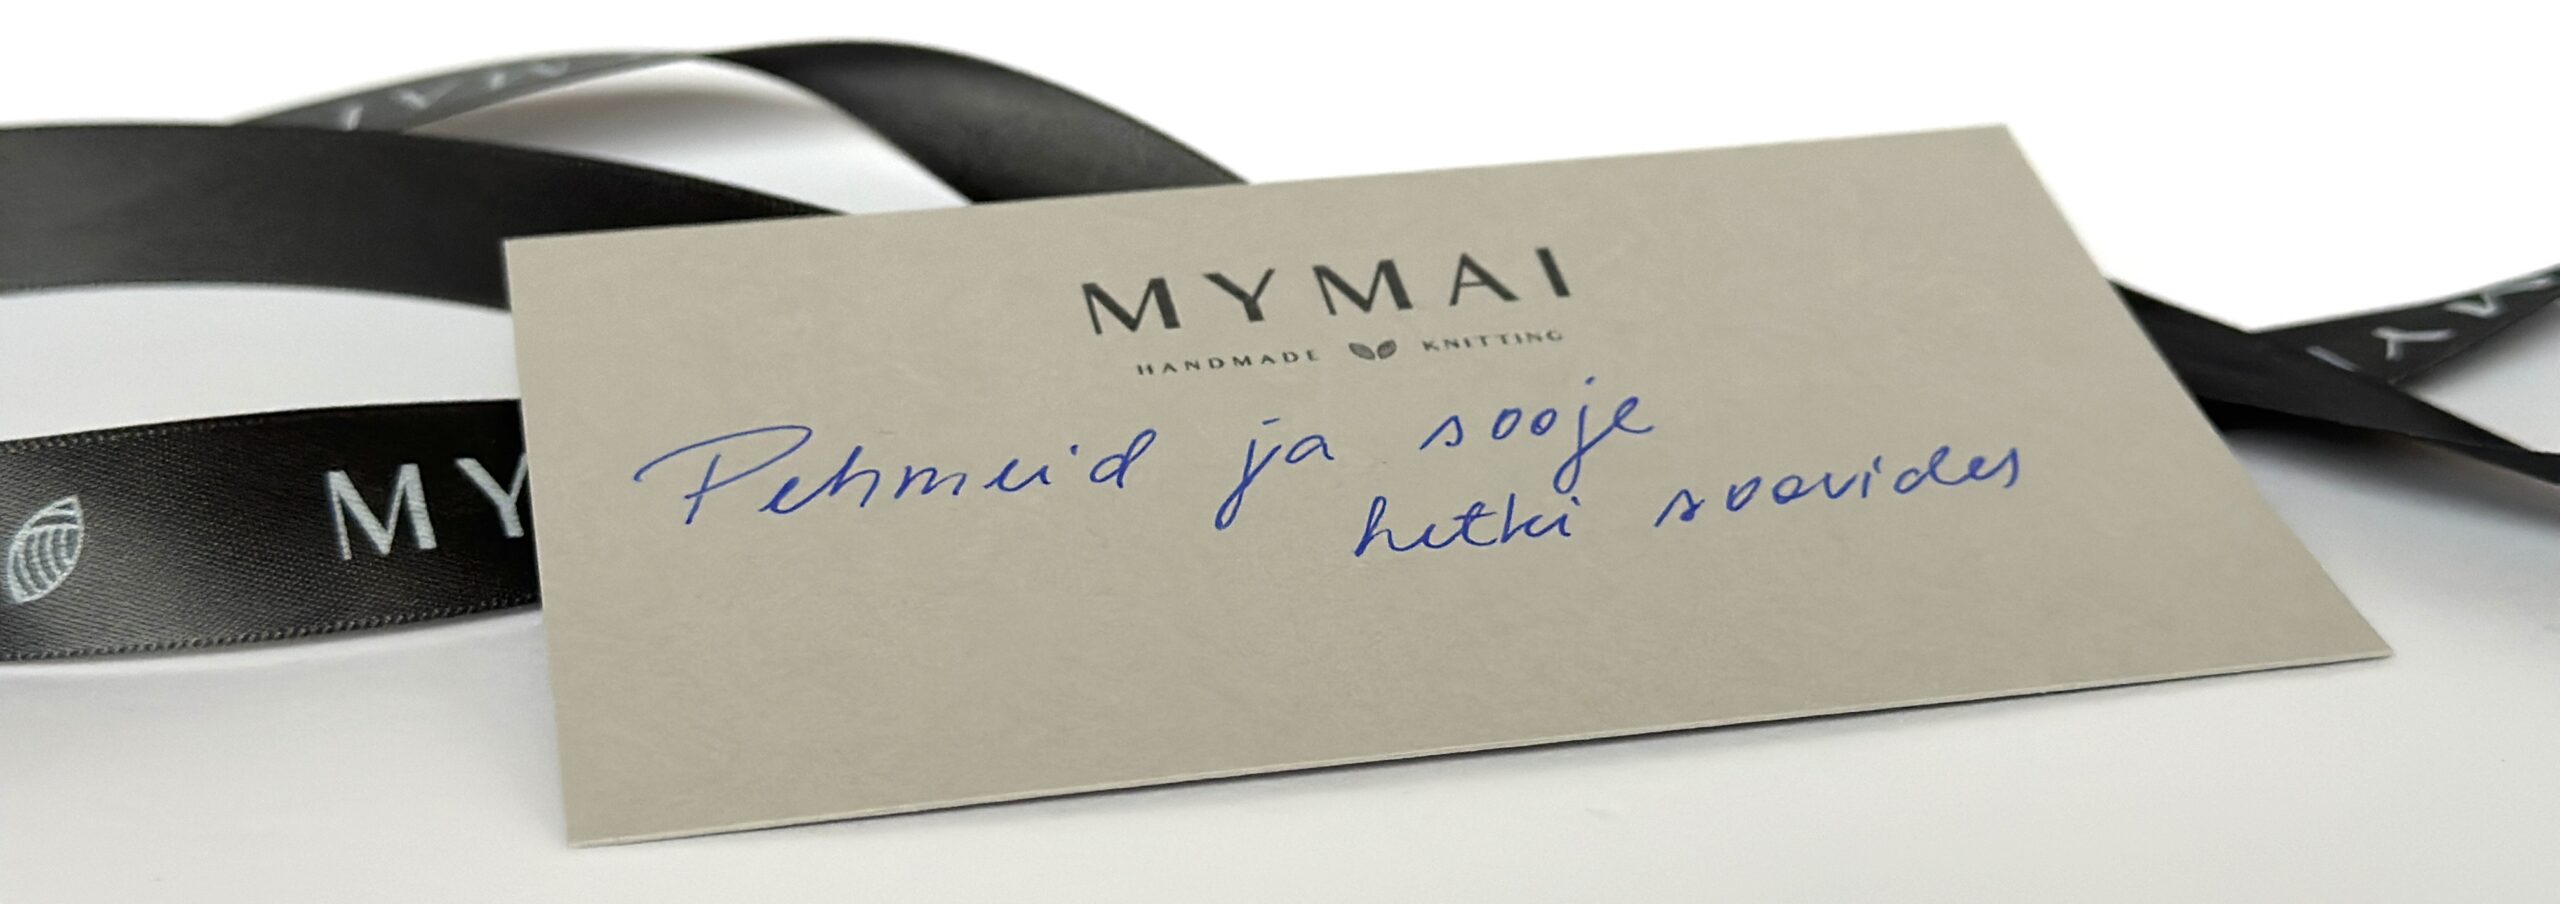 MYMAI
HANDMADE KNITTING
Pehmeid ja sooje
hetki soovides
MY